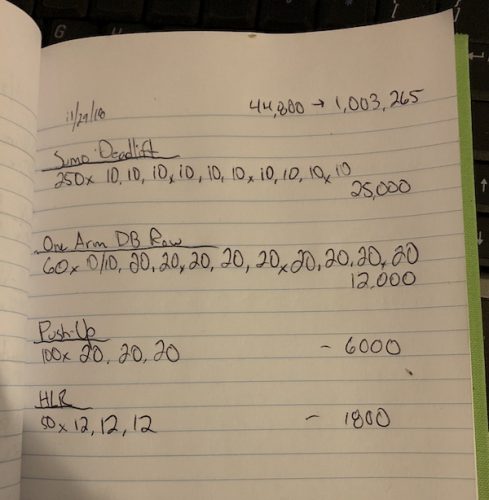 11/29/18
44,800 → 1,003,265
Sumo Deadlift
250x 10, 10, 10, 10, 10, 10, 10, 10, 10, 10
25,000
One Arm DB Row
60x 10/10, 20, 20, 20, 20, 20, 20, 20, 20, 20
12,000
Push-Up
100x 20, 20, 20 - 6000
HLR
50x 12, 12, 12 - 1800